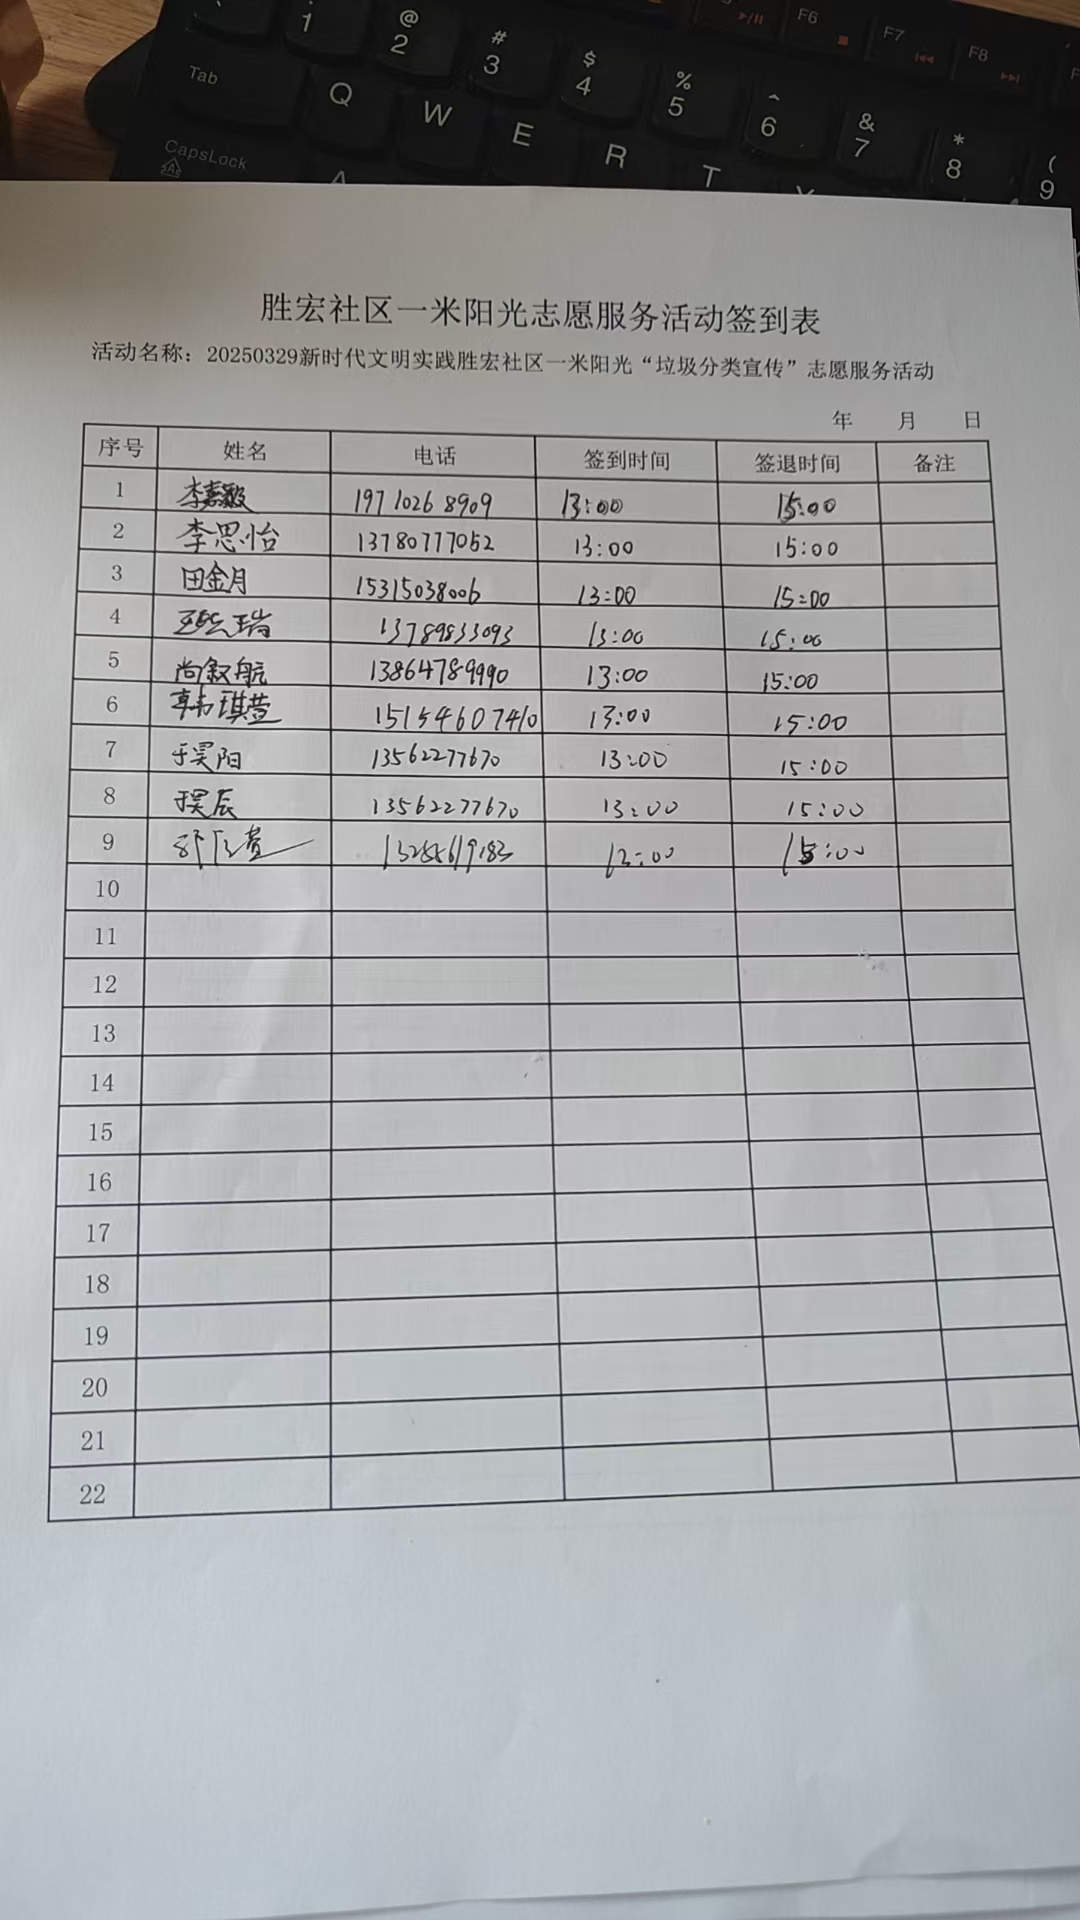 F6
F7
F8
! 1
@ 2
# 3
$ 4
% 5
^ 6
& 7
* 8
( 9
Tab
Q W E R T
CapsLock
A
胜宏社区一米阳光志愿服务活动签到表
活动名称：20250329新时代文明实践胜宏社区一米阳光“垃圾分类宣传”志愿服务活动
年 月 日
序号 姓名 电话 签到时间 签退时间 备注
1 李嘉毅 19710268909 13:00 15:00
2 李思怡 13780777052 13:00 15:00
3 田金月 15315038006 13:00 15:00
4 瑞 13789833093 13:00 15:00
5 尚叙航 13864789990 13:00 15:00
6 韩琪萱 15154607410 13:00 15:00
7 于昊阳 13562277670 13:00 15:00
8 于昊辰 13562277670 13:00 15:00
9 13:00 15:00
10
11
12
13
14
15
16
17
18
19
20
21
22